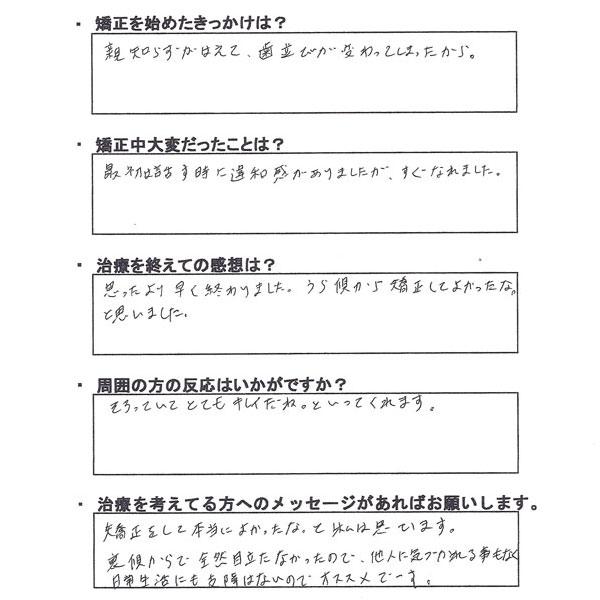 ・ 矯正を始めたきっかけは？
親知らずがはえて、歯並びが変わってしまったから。
・ 矯正中大変だったことは？
最初は話す時に違和感がありましたが、すぐなれました。
・ 治療を終えての感想は？
思ったより早く終わりました。うら側から矯正してよかったな。
と思いました。
・ 周囲の方の反応はいかがですか？
そろっていてとてもキレイだね。といってくれます。
・ 治療を考えてる方へのメッセージがあればお願いします。
矯正をして本当によかったな。と私は思ています。
裏側からで全然目立たなかったので、他人に気づかれる事もなく
日常生活にも支障はないのでオススメでーす。